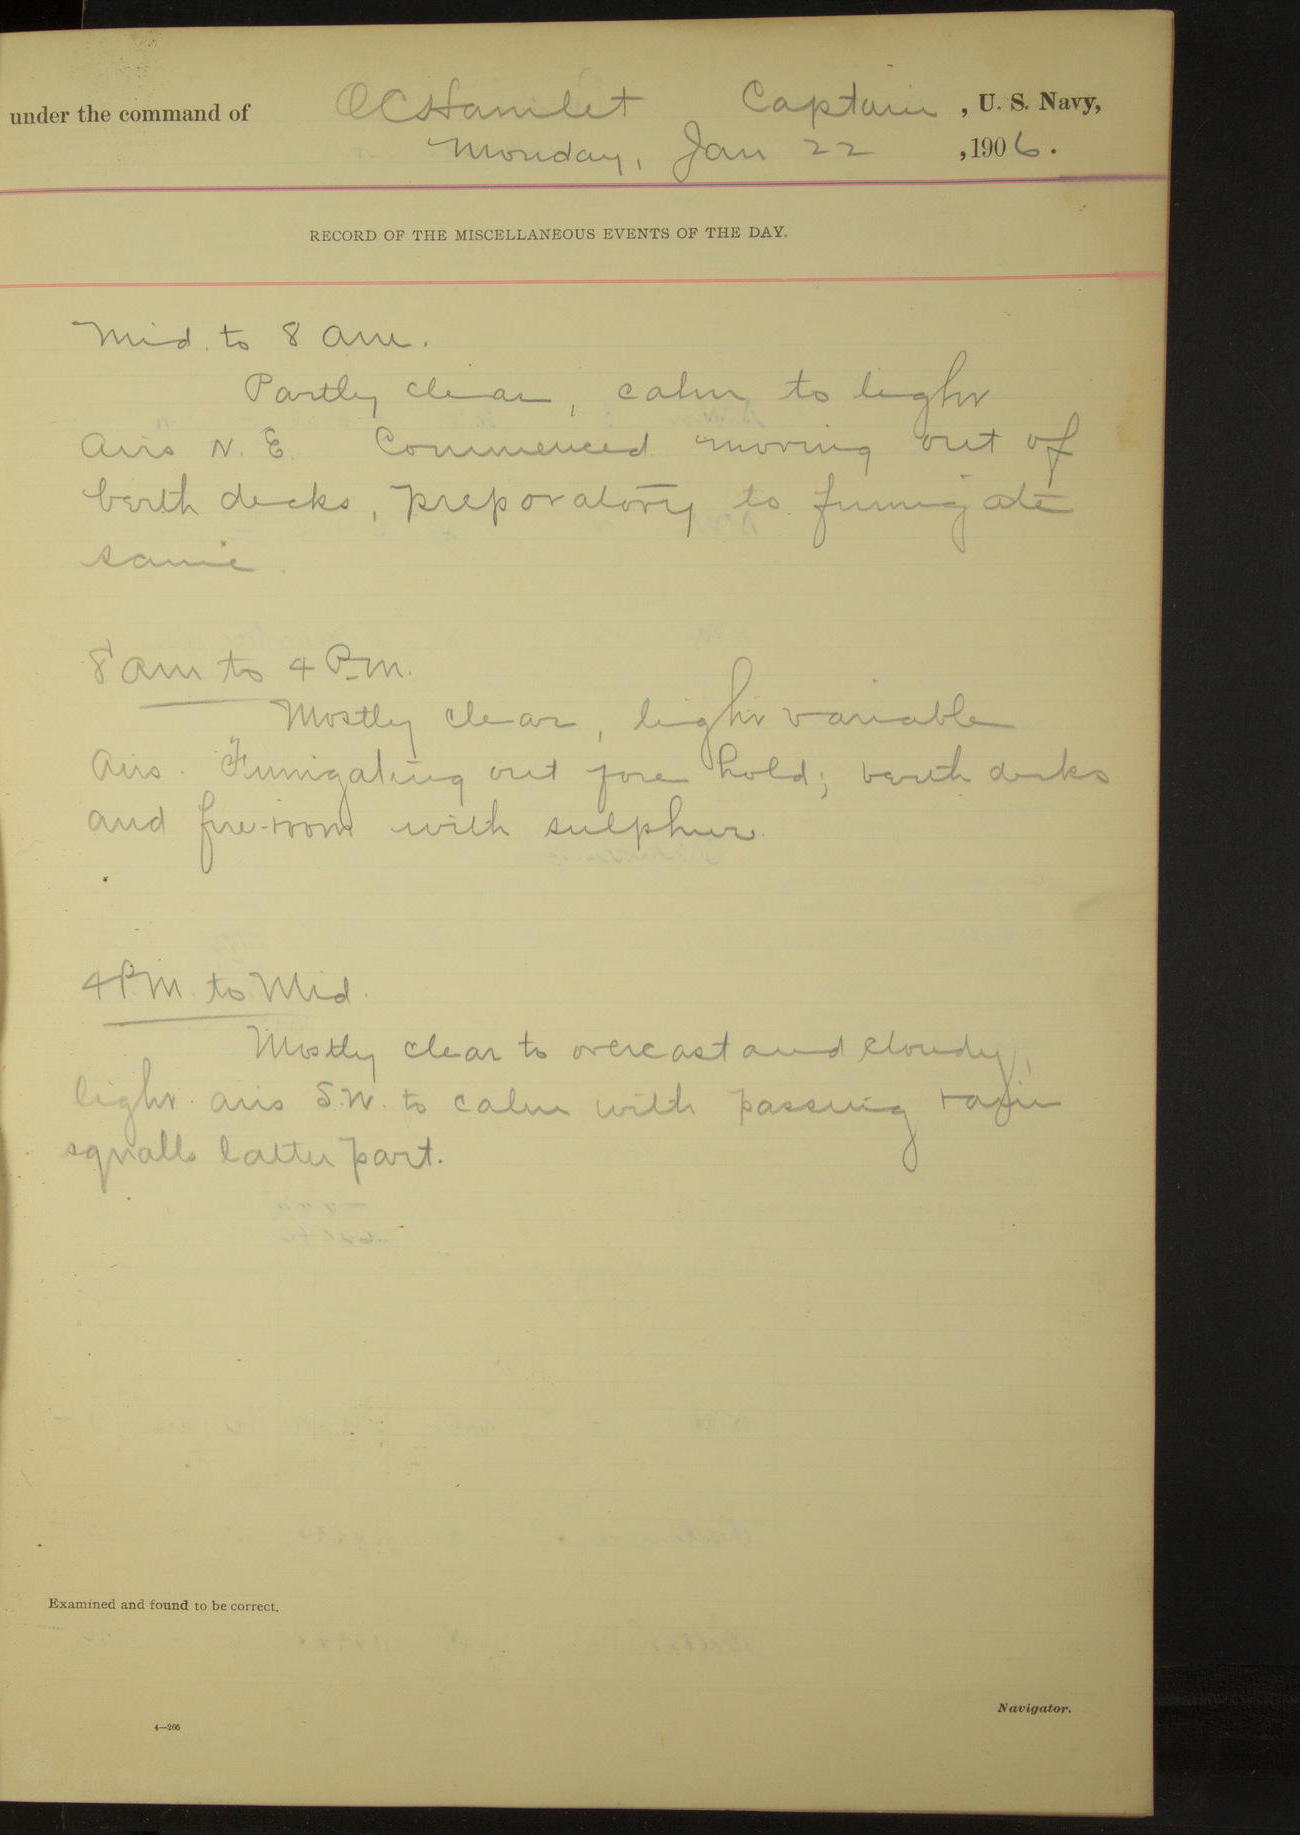 under the command of OCHamlet Captain, U. S. Navy,
Monday, Jan 22, 1906.
RECORD OF THE MISCELLANEOUS EVENTS OF THE DAY.
Mid. to 8 am.
Partly clear, calm to light
airs N. E. Commenced moving out of
berth decks, preparatory to fumigate
same.
8 am to 4 P.M.
Mostly clear, light variable
airs. Fumigating out fore hold; berth decks
and fire-room with sulphur.
4 P.M. to Mid.
Mostly clear to overcast and cloudy,
light airs S.W. to calm with passing rain
squalls latter part.
Examined and found to be correct.
Navigator.
4—266